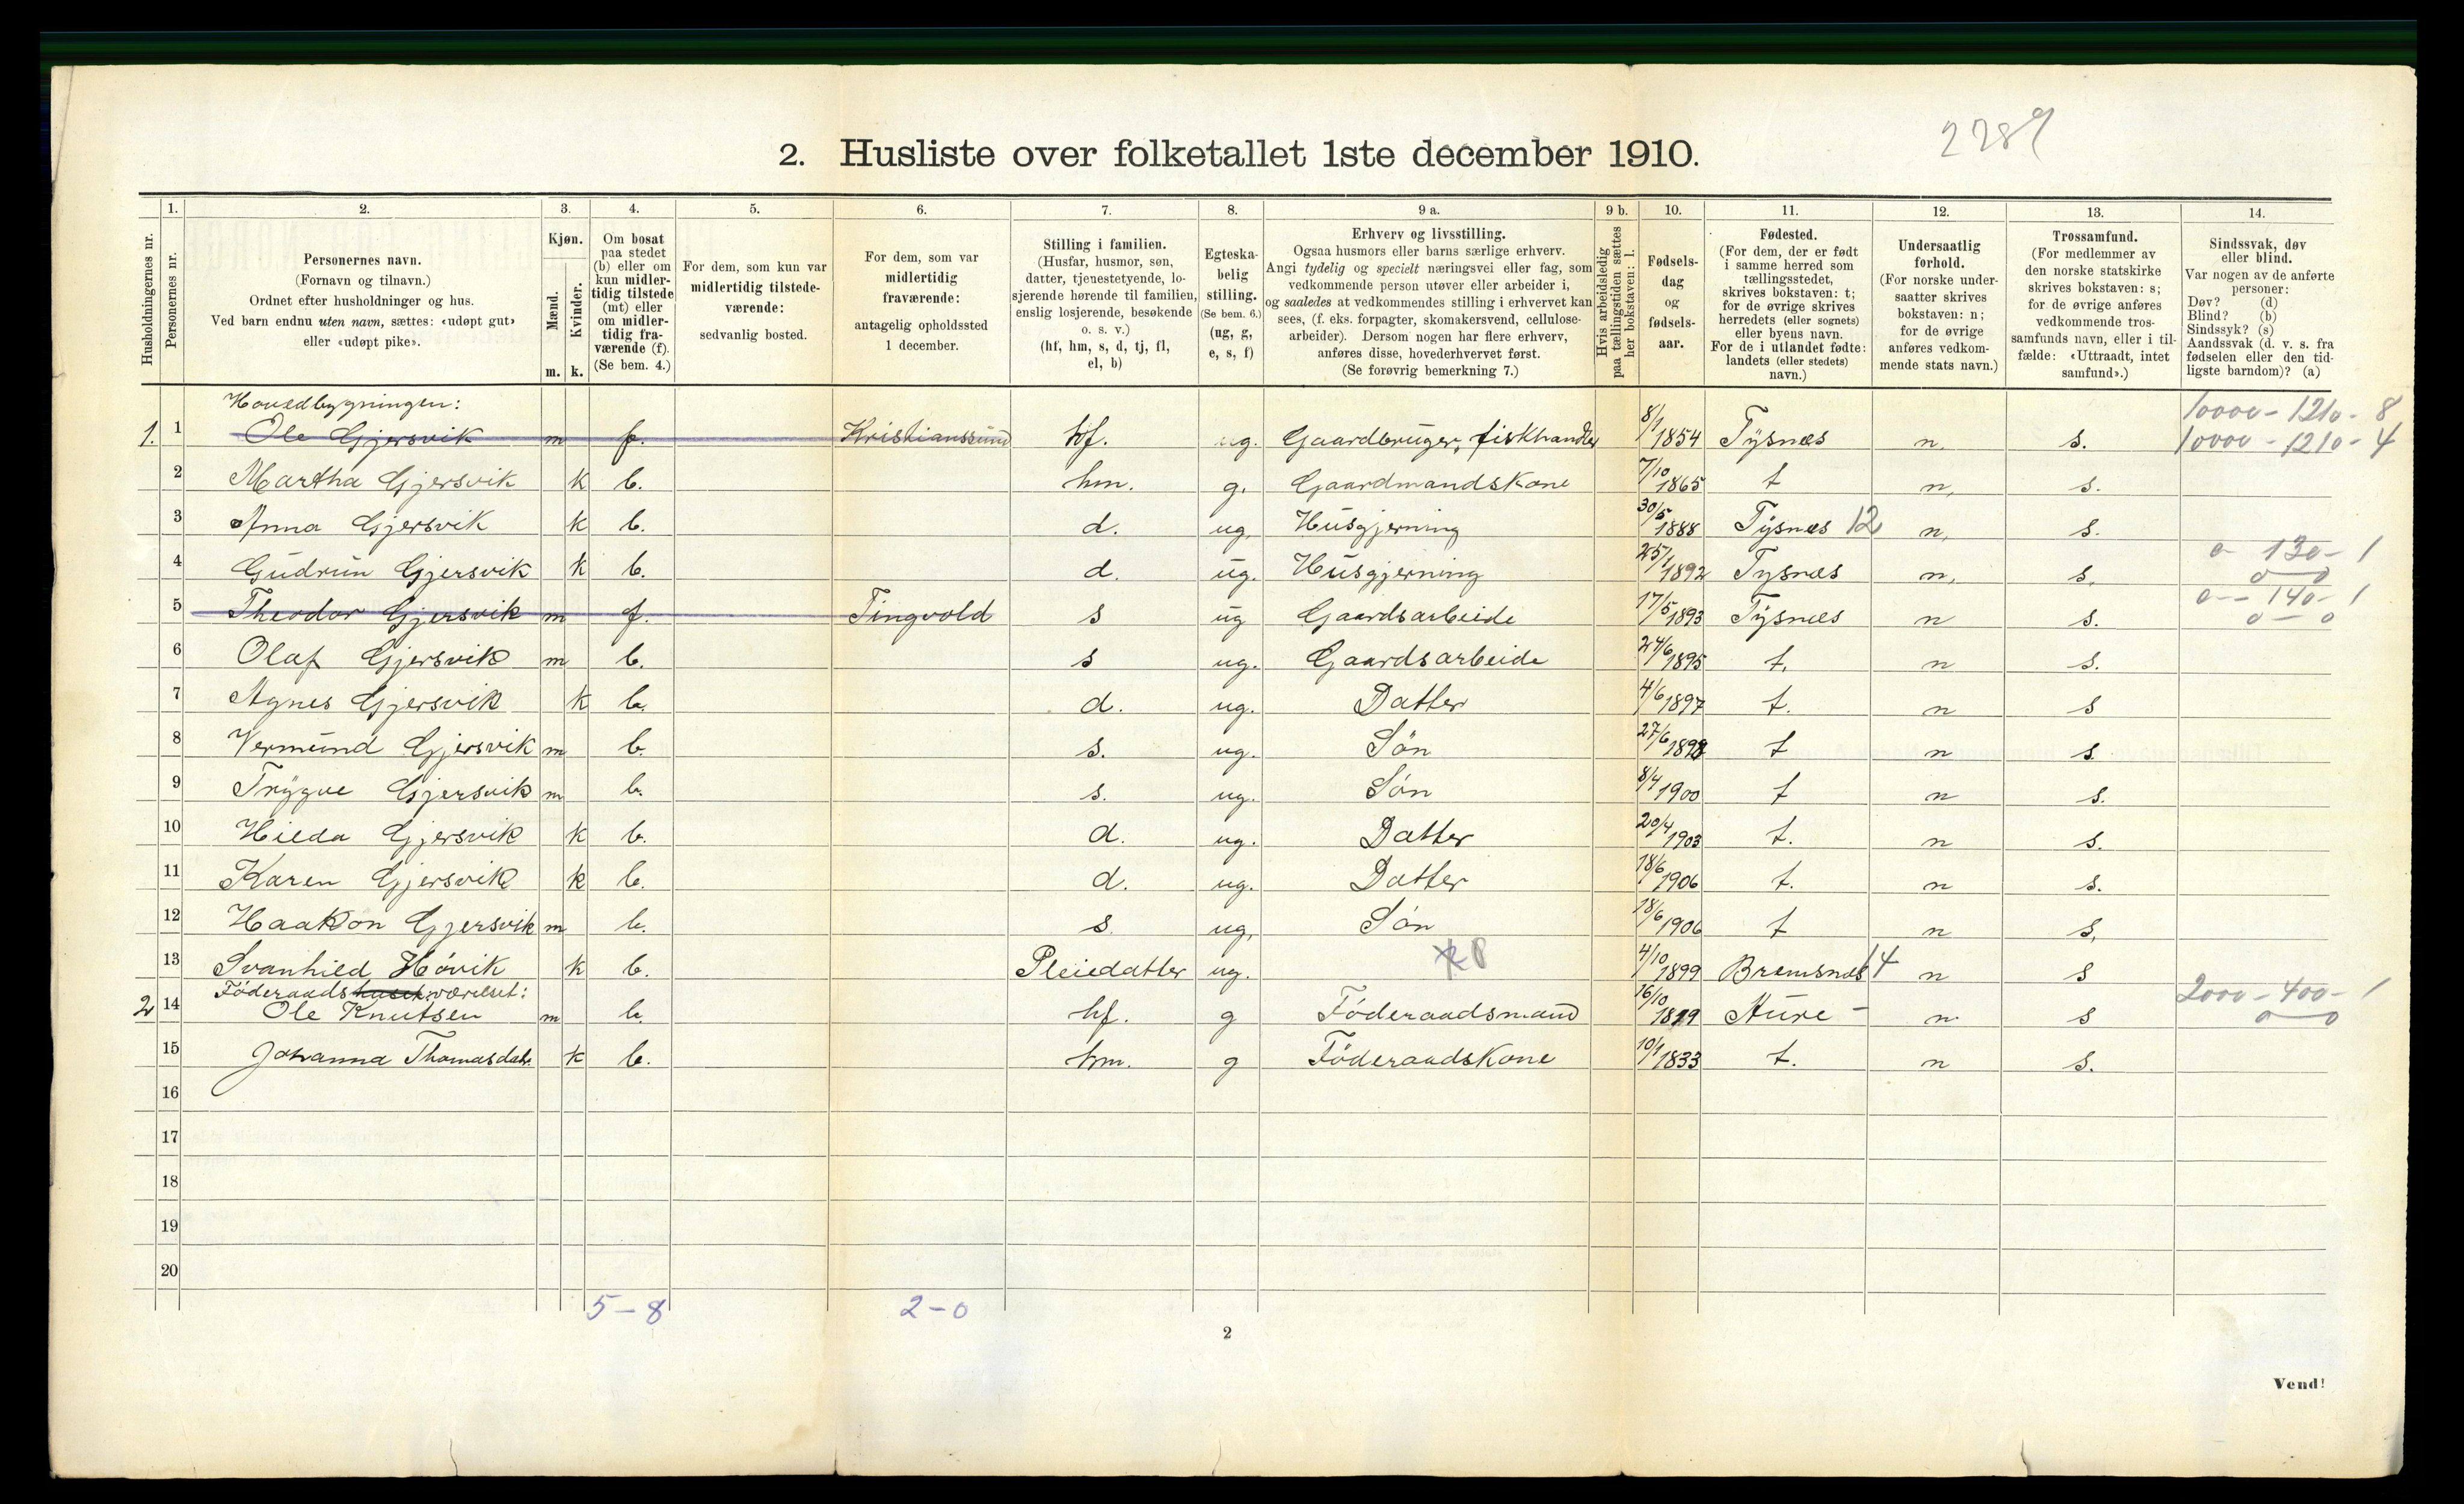 2289
2. Husliste over folketallet 1ste december 1910.
1. 2. 3. 4. 5. 6. 7. 8. 9 a. 9 b. 10. 11. 12. 13. 14.
Husholdningernes nr.
Personernes nr.
Personernes navn.
(Fornavn og tilnavn.)
Ordnet efter husholdninger og hus.
Ved barn endnu uten navn, sættes: «udøpt gut»
eller «udøpt pike».
Kjøn.
Mænd.
Kvinder.
m. k.
Om bosat
paa stedet
(b) eller om
kun midler-
tidig tilstede
(mt) eller
om midler-
tidig fra-
værende (f).
(Se bem. 4.)
For dem, som kun var
midlertidig tilstede-
værende:
sedvanlig bosted.
For dem, som var
midlertidig
fraværende:
antagelig opholdssted
1 december.
Stilling i familien.
(Husfar, husmor, søn,
datter, tjenestetyende, lo-
sjerende hørende til familien,
enslig losjerende, besøkende
o. s. v.)
(hf, hm, s, d, tj, fl,
el, b)
Egteska-
belig
stilling.
(Se bem. 6.)
(ug, g,
e, s, f)
Erhverv og livsstilling.
Ogsaa husmors eller barns særlige erhverv.
Angi tydelig og specielt næringsvei eller fag, som
vedkommende person utøver eller arbeider i,
og saaledes at vedkommendes stilling i erhvervet kan
sees, (f. eks. forpagter, skomakersvend, cellulose-
arbeider). Dersom nogen har flere erhverv,
anføres disse, hovederhvervet først.
(Se forøvrig bemerkning 7.)
Hvis arbeidsledig
paa tællingstiden sættes
her bokstaven: l.
Fødsels-
dag
og
fødsels-
aar.
Fødested.
(For dem, der er født
i samme herred som
tællingsstedet,
skrives bokstaven: t;
for de øvrige skrives
herredets (eller sognets)
eller byens navn.
For de i utlandet fødte:
landets (eller stedets)
navn.)
Undersaatlig
forhold.
(For norske under-
saatter skrives
bokstaven: n;
for de øvrige
anføres vedkom-
mende stats navn.)
Trossamfund.
(For medlemmer av
den norske statskirke
skrives bokstaven: s;
for de øvrige anføres
vedkommende tros-
samfunds navn, eller i til-
fælde: «Uttraadt, intet
samfund».)
Sindssvak, døv
eller blind.
Var nogen av de anførte
personer:
Døv? (d)
Blind? (b)
Sindssyk? (s)
Aandssvak (d. v. s. fra
fødselen eller den tid-
ligste barndom)? (a)
Hovedbygningen: 10000 - 1210 - 8
1. 1 Ole Gjersvik m f. Kristianssund hf. ug. Gaardbruger, fiskhandler 8/1 1854 Tysnæs n. s. 10000 - 1210 - 4
2 Martha Gjersvik k b. hm. g. Gaardmandskone 7/10 1865 t n. s.
3 Anna Gjersvik k b. d. ug. Husgjerning 30/5 1888 Tysnæs 12 n. s.
4 Gudrun Gjersvik k b. d. ug. Husgjerning 25/1 1892 Tysnæs n. s. 0 - 130 - 1
0 - 0
5 Theodor Gjersvik m f. Tingvold s ug Gaardsarbeide 17/5 1893 Tysnæs n s. 0 - 140 - 1
0 - 0
6 Olaf Gjersvik m b. s ug. Gaardsarbeide 24/6 1895 t. n s.
7 Agnes Gjersvik k b. d. ug. Datter 4/6 1897 t. n s
8 Vermund Gjersvik m b. s. ug. Søn 27/6 1898 t n s
9 Trygve Gjersvik m b. s. ug. Søn 8/4 1900 t n s.
10 Hilda Gjersvik k b. d. ug. Datter 20/4 1903 t. n s.
11 Karen Gjersvik k b. d. ug. Datter 18/6 1906 t. n s.
12 Haakon Gjersvik m b. s. ug. Søn 18/6 1906 t n s.
13 Svanhild Høvik k b. Pleiedatter ug. 4/10 1899 Bremsnes 14 n s
Föderaads værelset: 2000 - 400 - 1
2 14 Ole Knutsen m b. hf. g Föderaadsmand 16/10 1819 Aure - n. s 0 - 0
15 Johanna Thomasdatr. k b. hm. g Föderaadskone 10/1 1833 t. n s.
16
17
18
19
20
5 - 8 2 - 0
2
Vend!